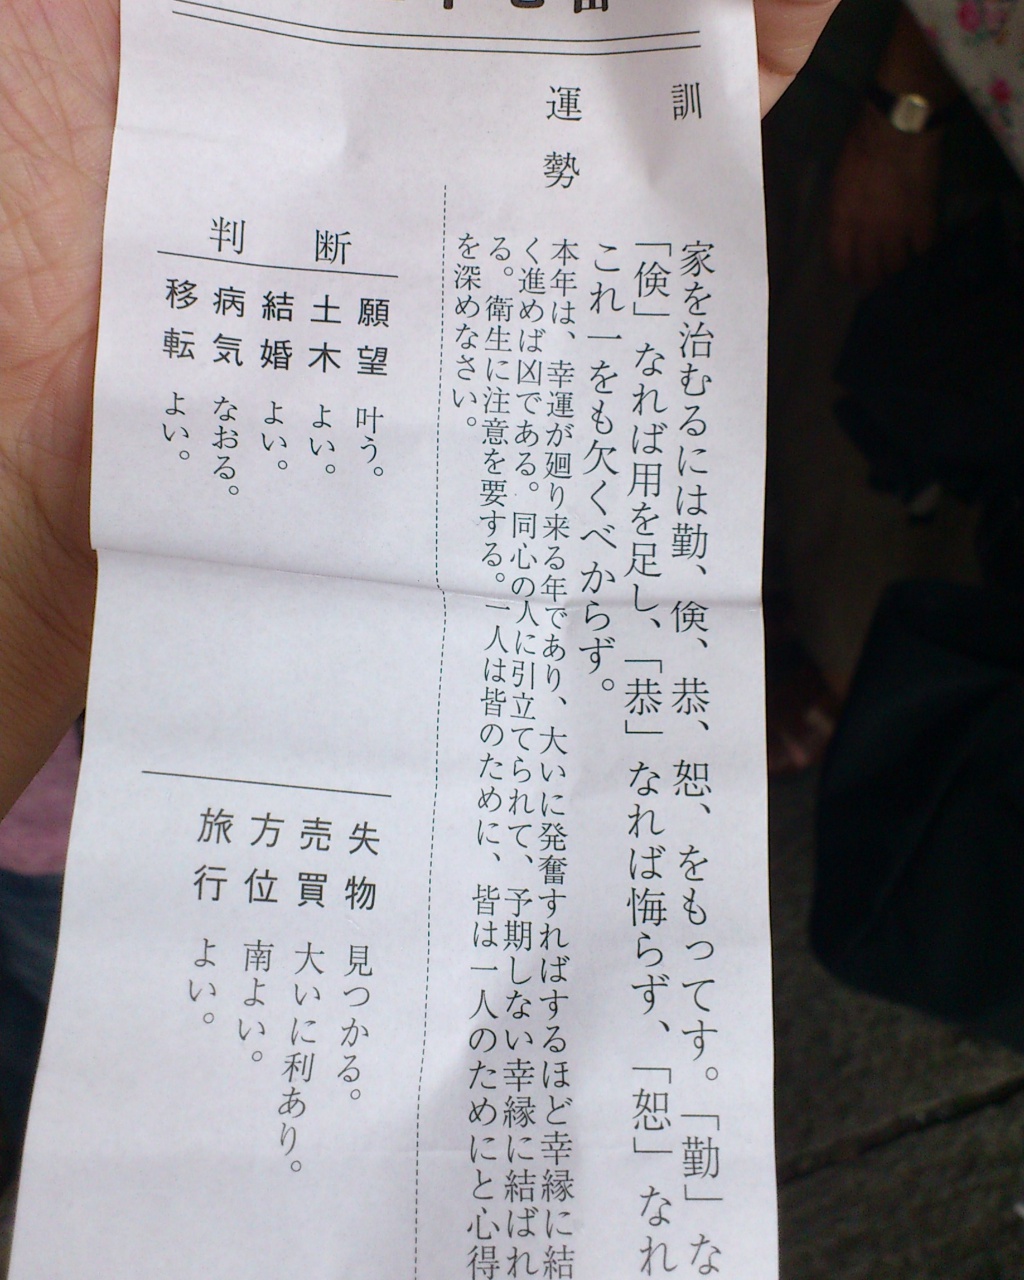 訓
家を治むるには勤、倹、恭、恕、をもってす。「勤」な
「倹」なれば用を足し、「恭」なれば悔らず、「恕」なれ
これ一をも欠くべからず。
運勢
本年は、幸運が廻り来る年であり、大いに発奮すればするほど幸縁に結
く進めば凶である。同心の人に引立てられて、予期しない幸縁に結ばれ
る。衛生に注意を要する。一人は皆のために、皆は一人のためにと心得
を深めなさい。
判断
願望 叶う。
土木 よい。
結婚 よい。
病気 なおる。
移転 よい。
失物 見つかる。
売買 大いに利あり。
方位 南よい。
旅行 よい。